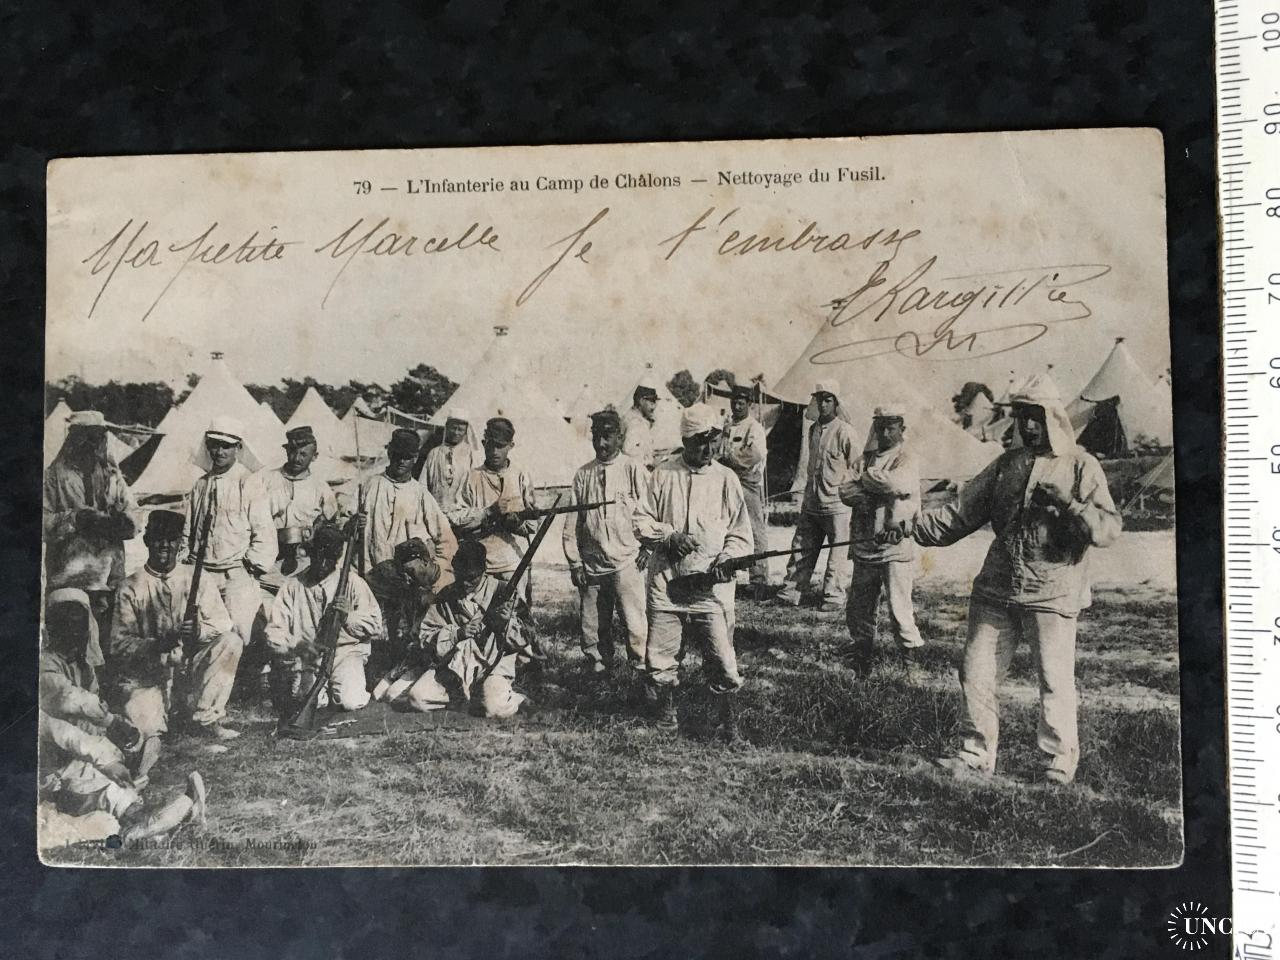 79 — L'Infanterie au Camp de Châlons — Nettoyage du Fusil.
Ma petite Marcelle Je t'embrasse
Militaire Guérin, Mourmelon
100
90
80
70
60
50
40
30
UNC